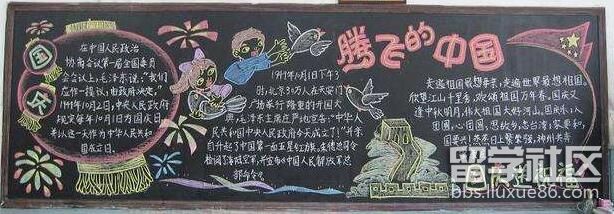 国
庆
在中国人民政治
协商会议第一届全国委员
会会议上,毛泽东说,"我们
应作一提议,由政府决定。"
1949年10月2日,中央人民政府
规定每年10月1日为国庆日
并以这一天作为中华人民共和
国成立日。
1949年10月1日下午3
时,北京30万人在天安门
广场举行隆重的开国大
典,毛泽东主席庄严地宣告:"中华人
民共和国中央人民政府今天成立了!"并亲
自升起了中国第一面五星红旗。
检阅了海陆空军
中国人民解放军
部命令。
腾飞的中国
走遍祖国最想亲亲,走遍世界最想祖国。
欣望江山千里秀,欢颂祖国万年春。国庆又
逢中秋明月,伟大祖国大好河山。国庆乐,八
团圆,心团圆,思故乡,
国庆
祝福
留学社区
bbs.liuxue86.com